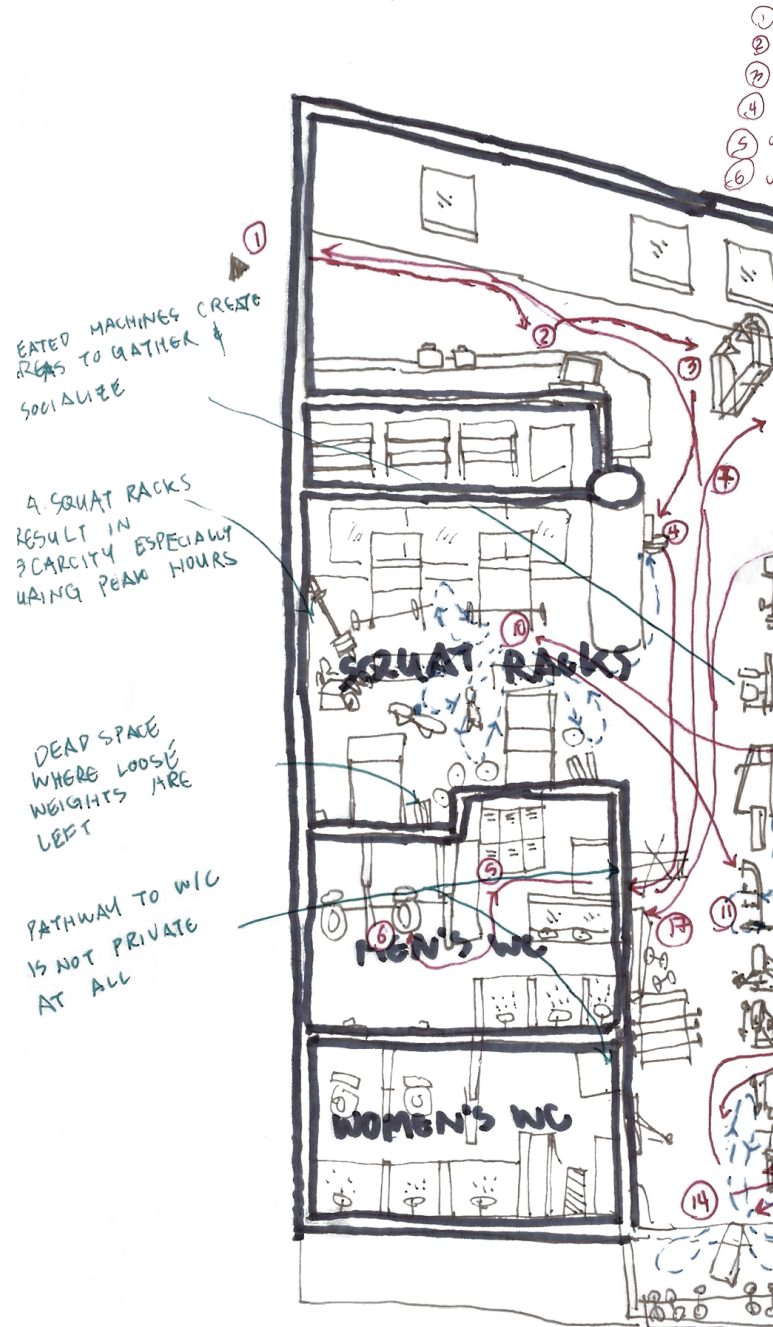 1
2
3
4
5
6
1
EATED MACHINES CREATE
REAS TO GATHER &
SOCIALIZE
2
3
7
4 SQUAT RACKS
RESULT IN
SCARCITY ESPECIALLY
URING PEAK HOURS
4
10
SQUAT RACKS
DEAD SPACE
WHERE LOOSE
WEIGHTS ARE
LEFT
PATHWAY TO W/C
IS NOT PRIVATE
AT ALL
5
6
MEN'S WC
11
17
WOMEN'S WC
14